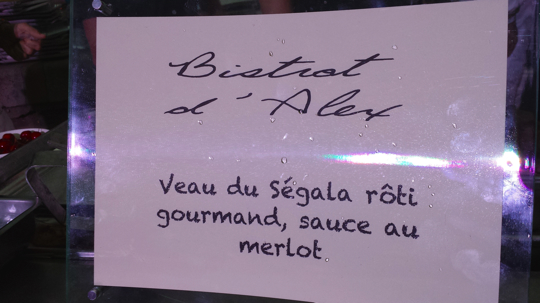 Bistrot
d'Alex
Veau du Ségala rôti
gourmand, sauce au
merlot